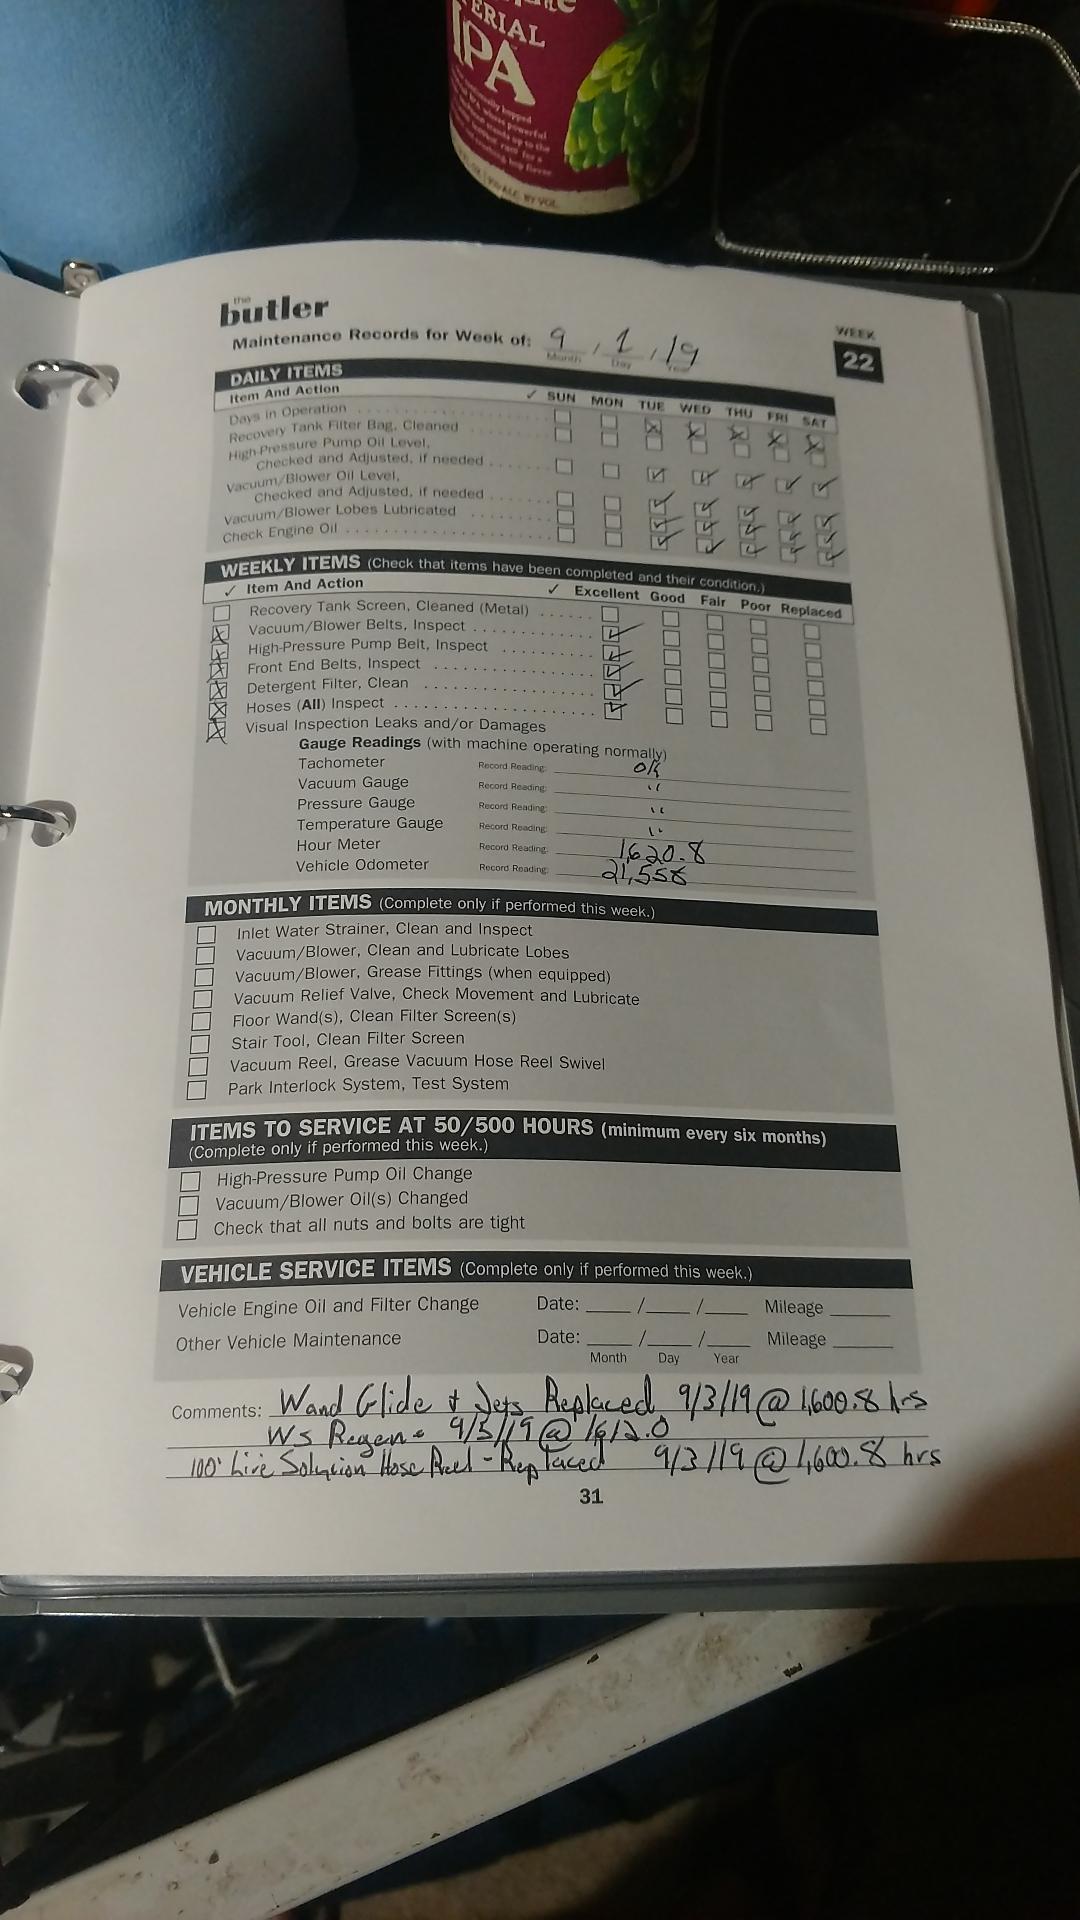 ERIAL
IPA
ALC. BY VOL.
the
butler
Maintenance Records for Week of: 9 / 1 / 19
Month Day Year
WEEK
22
DAILY ITEMS
Item And Action ✓ SUN MON TUE WED THU FRI SAT
Days in Operation
Recovery Tank Filter Bag, Cleaned
High-Pressure Pump Oil Level,
Checked and Adjusted, if needed
Vacuum/Blower Oil Level,
Checked and Adjusted, if needed
Vacuum/Blower Lobes Lubricated
Check Engine Oil
WEEKLY ITEMS (Check that items have been completed and their condition.)
✓ Item And Action ✓ Excellent Good Fair Poor Replaced
Recovery Tank Screen, Cleaned (Metal)
Vacuum/Blower Belts, Inspect
High-Pressure Pump Belt, Inspect
Front End Belts, Inspect
Detergent Filter, Clean
Hoses (All) Inspect
Visual Inspection Leaks and/or Damages
Gauge Readings (with machine operating normally)
Tachometer Record Reading: OK
Vacuum Gauge Record Reading: "
Pressure Gauge Record Reading: "
Temperature Gauge Record Reading: "
Hour Meter Record Reading: 1,620.8
Vehicle Odometer Record Reading: 21,558
MONTHLY ITEMS (Complete only if performed this week.)
Inlet Water Strainer, Clean and Inspect
Vacuum/Blower, Clean and Lubricate Lobes
Vacuum/Blower, Grease Fittings (when equipped)
Vacuum Relief Valve, Check Movement and Lubricate
Floor Wand(s), Clean Filter Screen(s)
Stair Tool, Clean Filter Screen
Vacuum Reel, Grease Vacuum Hose Reel Swivel
Park Interlock System, Test System
ITEMS TO SERVICE AT 50/500 HOURS (minimum every six months)
(Complete only if performed this week.)
High-Pressure Pump Oil Change
Vacuum/Blower Oil(s) Changed
Check that all nuts and bolts are tight
VEHICLE SERVICE ITEMS (Complete only if performed this week.)
Vehicle Engine Oil and Filter Change Date: ____ /____ /____ Mileage ______
Other Vehicle Maintenance Date: ____ /____ /____ Mileage ______
Month Day Year
Comments: Wand Glide & Jets Replaced 9/3/19 @ 1,600.8 hrs
WS Regen - 9/5/19 @ 1612.0
100' Live Solution Hose Reel - Replaced 9/3/19 @ 1,600.8 hrs
31